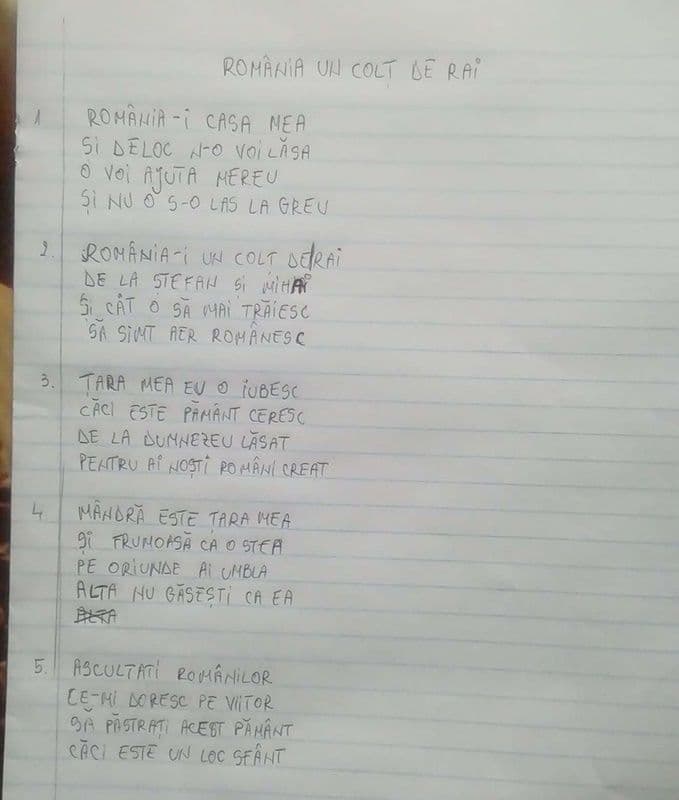 ROMÂNIA UN COLȚ DE RAI
1 ROMÂNIA-I CASA MEA
ȘI DELOC N-O VOI LĂSA
O VOI AJUTA MEREU
ȘI NU O S-O LAS LA GREU
2. ROMÂNIA-I UN COLT DE RAI
DE LA ȘTEFAN SI MIHAI
ȘI CÂT O SĂ MAI TRĂIESC
SĂ SIMT AER ROMÂNESC
3. ȚARA MEA EU O IUBESC
CĂCI ESTE PĂMÂNT CERESC
DE LA DUMNEZEU LĂSAT
PENTRU AI NOȘTI ROMÂNI CREAT
4. MÂNDRĂ ESTE ȚARA MEA
ȘI FRUMOASĂ CA O STEA
PE ORIUNDE AI UMBLA
ALTA NU GĂSEȘTI CA EA
ALTA
5. ASCULTATI ROMÂNILOR
CE-MI DORESC PE VIITOR
SĂ PĂSTRAȚI ACEST PĂMÂNT
CĂCI ESTE UN LOC SFÂNT